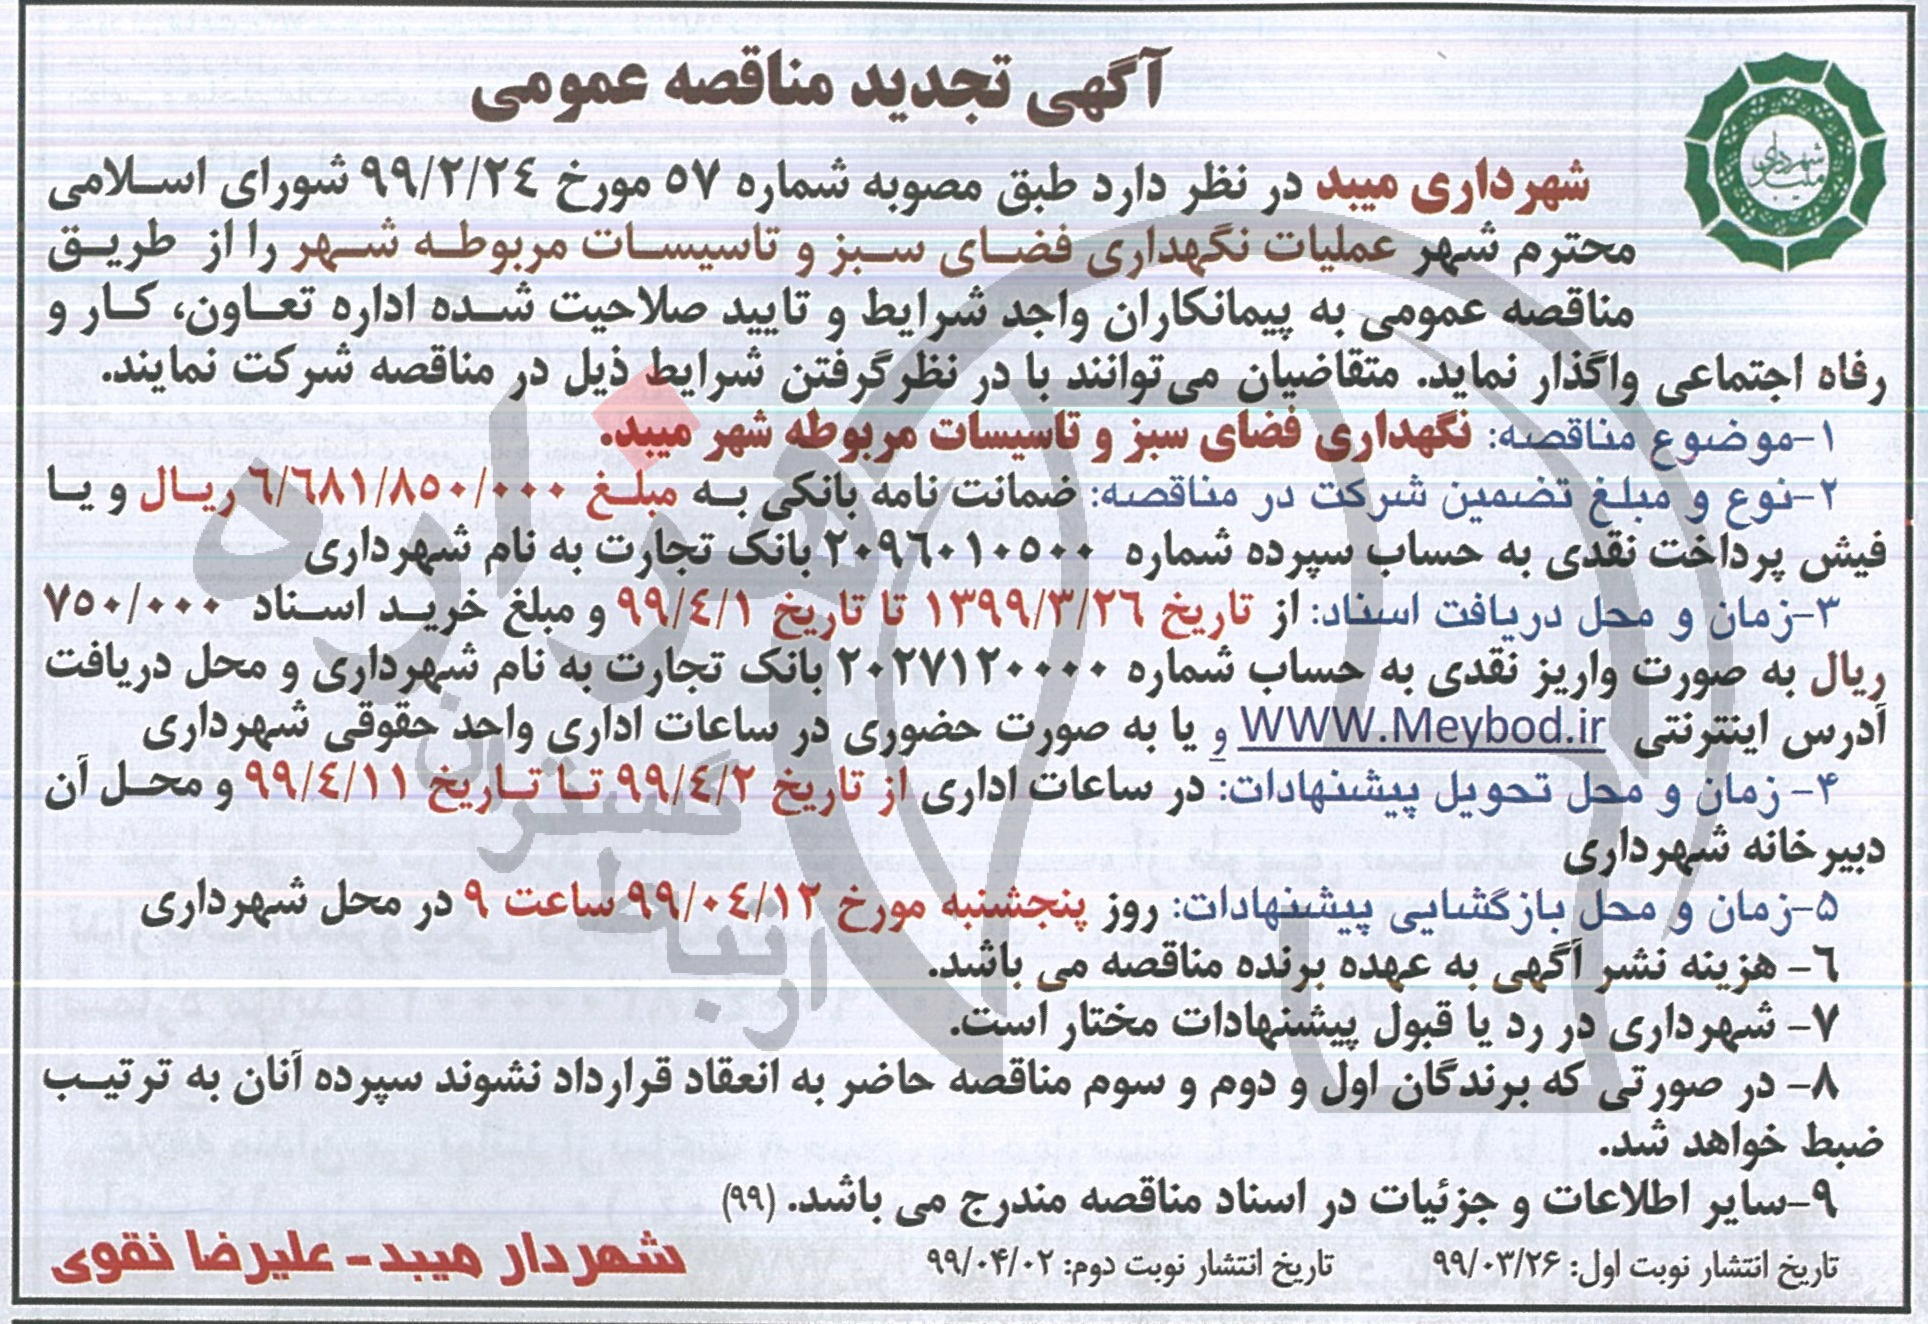 آگهی تجدید مناقصه عمومی
شهرداری میبد
شهرداری میبد در نظر دارد طبق مصوبه شماره ۵۷ مورخ ۹۹/۲/۲٤ شورای اسلامی
محترم شهر عملیات نگهداری فضای سبز و تاسیسات مربوطه شهر را از طریق
مناقصه عمومی به پیمانکاران واجد شرایط و تایید صلاحیت شده اداره تعاون، کار و
رفاه اجتماعی واگذار نماید. متقاضیان می‌توانند با در نظرگرفتن شرایط ذیل در مناقصه شرکت نمایند.
۱-موضوع مناقصه: نگهداری فضای سبز و تاسیسات مربوطه شهر میبد.
۲-نوع و مبلغ تضمین شرکت در مناقصه: ضمانت نامه بانکی به مبلغ ٦/٦٨١/٨٥٠/٠٠٠ ریال و یا
فیش پرداخت نقدی به حساب سپرده شماره ۲۰۹٦۰۱۰۵۰۰ بانک تجارت به نام شهرداری
۳-زمان و محل دریافت اسناد: از تاریخ ۱۳۹۹/۳/۲٦ تا تاریخ ۹۹/٤/۱ و مبلغ خرید اسناد ۷۵۰/۰۰۰
ریال به صورت واریز نقدی به حساب شماره ۲۰۲۷۱۲۰۰۰۰ بانک تجارت به نام شهرداری و محل دریافت
آدرس اینترنتی WWW.Meybod.ir و یا به صورت حضوری در ساعات اداری واحد حقوقی شهرداری
۴- زمان و محل تحویل پیشنهادات: در ساعات اداری از تاریخ ۹۹/٤/۲ تا تاریخ ۹۹/٤/۱۱ و محل آن
دبیرخانه شهرداری
۵-زمان و محل بازگشایی پیشنهادات: روز پنجشنبه مورخ ۹۹/۰٤/۱۲ ساعت ۹ در محل شهرداری
٦- هزینه نشر آگهی به عهده برنده مناقصه می باشد.
۷- شهرداری در رد یا قبول پیشنهادات مختار است.
۸- در صورتی که برندگان اول و دوم و سوم مناقصه حاضر به انعقاد قرارداد نشوند سپرده آنان به ترتیب
ضبط خواهد شد.
۹-سایر اطلاعات و جزئیات در اسناد مناقصه مندرج می باشد. (۹۹)
تاریخ انتشار نوبت اول: ۹۹/۰۳/۲۶ تاریخ انتشار نوبت دوم: ۹۹/۰۴/۰۲
شهردار میبد- علیرضا نقوی